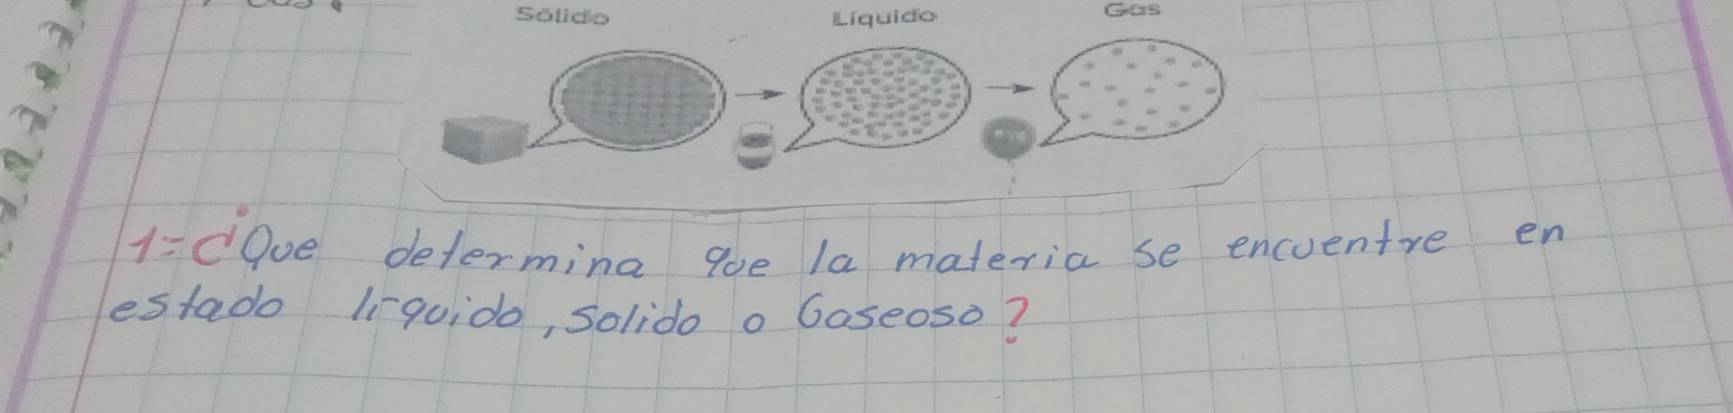 Sólido Líquido Gas
1=¿Que determina que la materia se encuentre en
estado líquido, solido o Gaseoso?